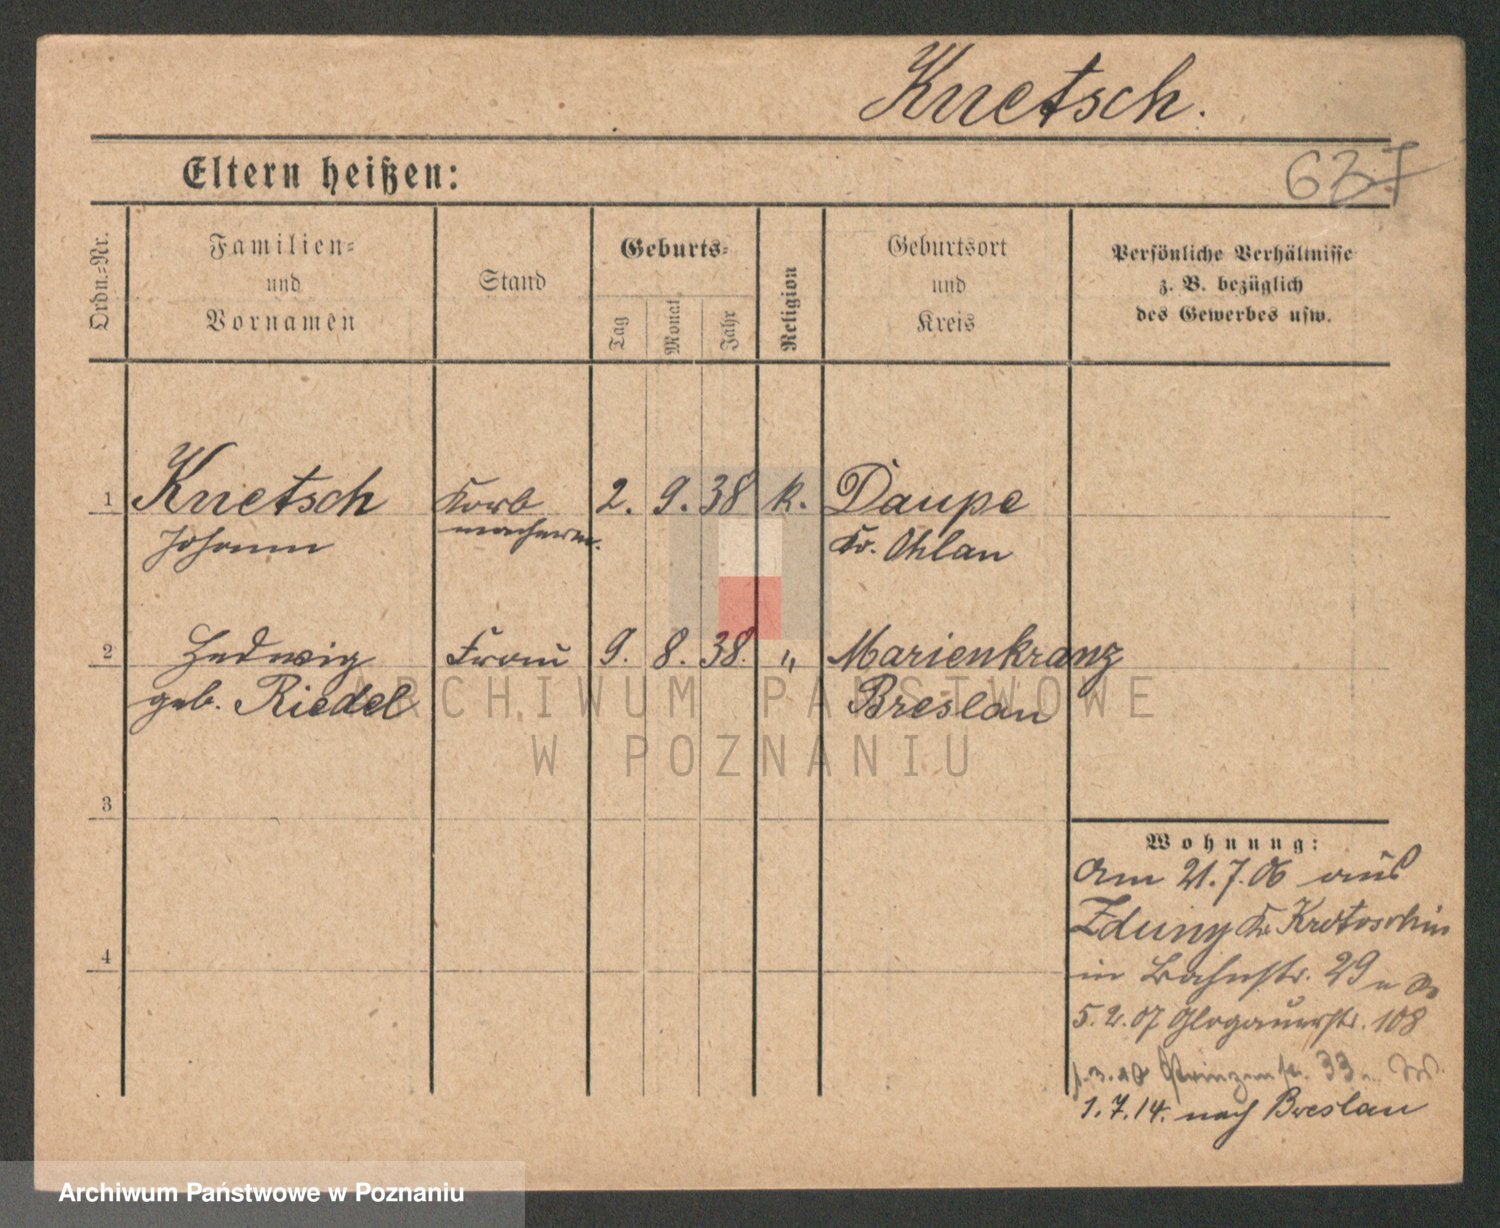 Knetsch.
Eltern heißen:
637
Ordn.=Nr.
Familien=
und
Vornamen
Stand
Geburts=
Tag
Monat
Jahr
Religion
Geburtsort
und
Kreis
Persönliche Verhältnisse
z. B. bezüglich
des Gewerbes usw.
1 Knetsch Korb 2. 9. 38 k. Daupe
Johann macherm. Kr. Ohlau
2 Hedwig Frau 9. 8. 38. " Marienkranz
geb. Riedel Breslau
3
4
Wohnung:
Am 21.7.06 aus
Zduny Kr. Krotoschin
in Bahnstr. 29
5.2.07 Glogauerstr. 108
Prinzenstr. 33
1.7.14. nach Breslau
ARCHIWUM PAŃSTWOWE
W POZNANIU
Archiwum Państwowe w Poznaniu